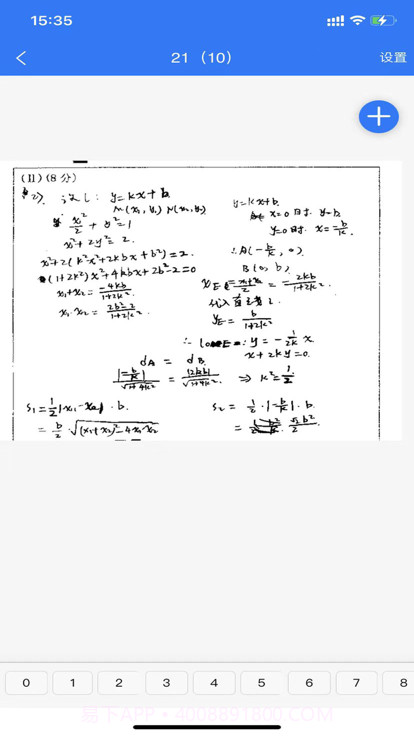 15:35
21 (10)
设置
(II) (8分)
(2). 设 l: y=kx+b
M(x₁, y₁) N(x₂, y₂)
x²/2 + y²=1
x²+2y²=2.
x²+2(k²x²+2kbx+b²)=2.
(1+2k²)x²+4kbx+2b²-2=0
x₁+x₂= -4kb/1+2k².
x₁·x₂= 2b²-2/1+2k²
y=kx+b.
x=0时. y=b.
y=0时. x=-b/k.
∴A(-b/k, 0)
B(0, b)
x_E = x₁+x₂/2 = -2kb/1+2k².
代入直线 l.
y_E = b/1+2k²
∴ l_OE: y=-1/2k x
x+2ky=0.
d_A = d_B
|-b/k|/√1+4k² = |2kb|/√1+4k² ⇒ k²=1/2
S₁=1/2|x₁-x₂|·b.
= b/2·√(x₁+x₂)²-4x₁x₂
S₂= 1/2·|-b/k|·b
= √2b²/2
0
1
2
3
4
5
6
7
8